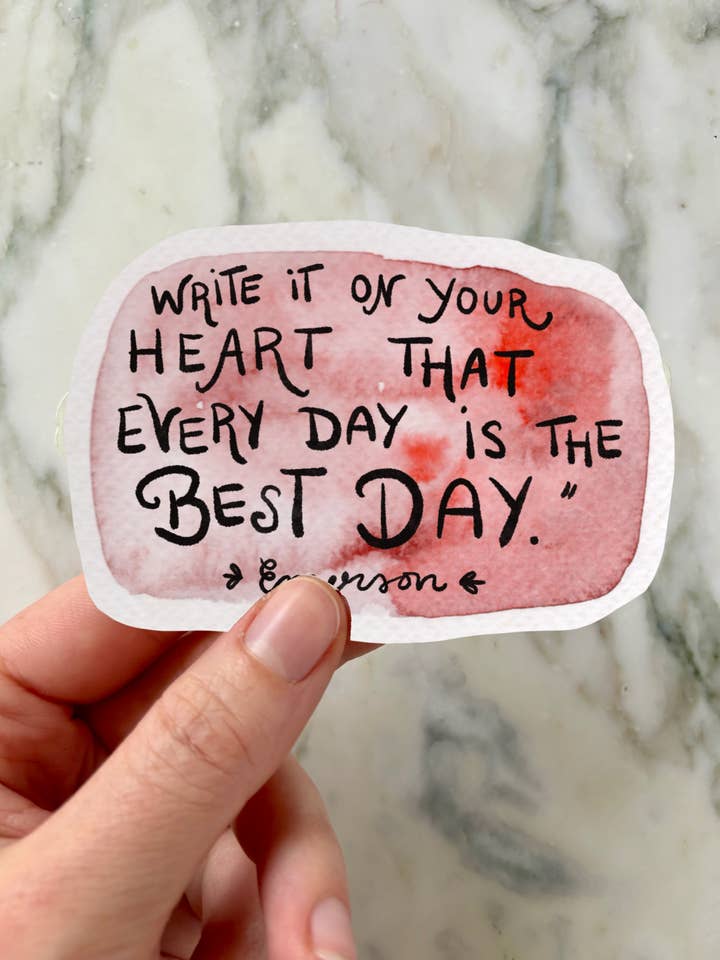 WRiTE iT ON YOUR
HEART THAT
EVERY DAY iS THE
BEST DAY."
Emerson